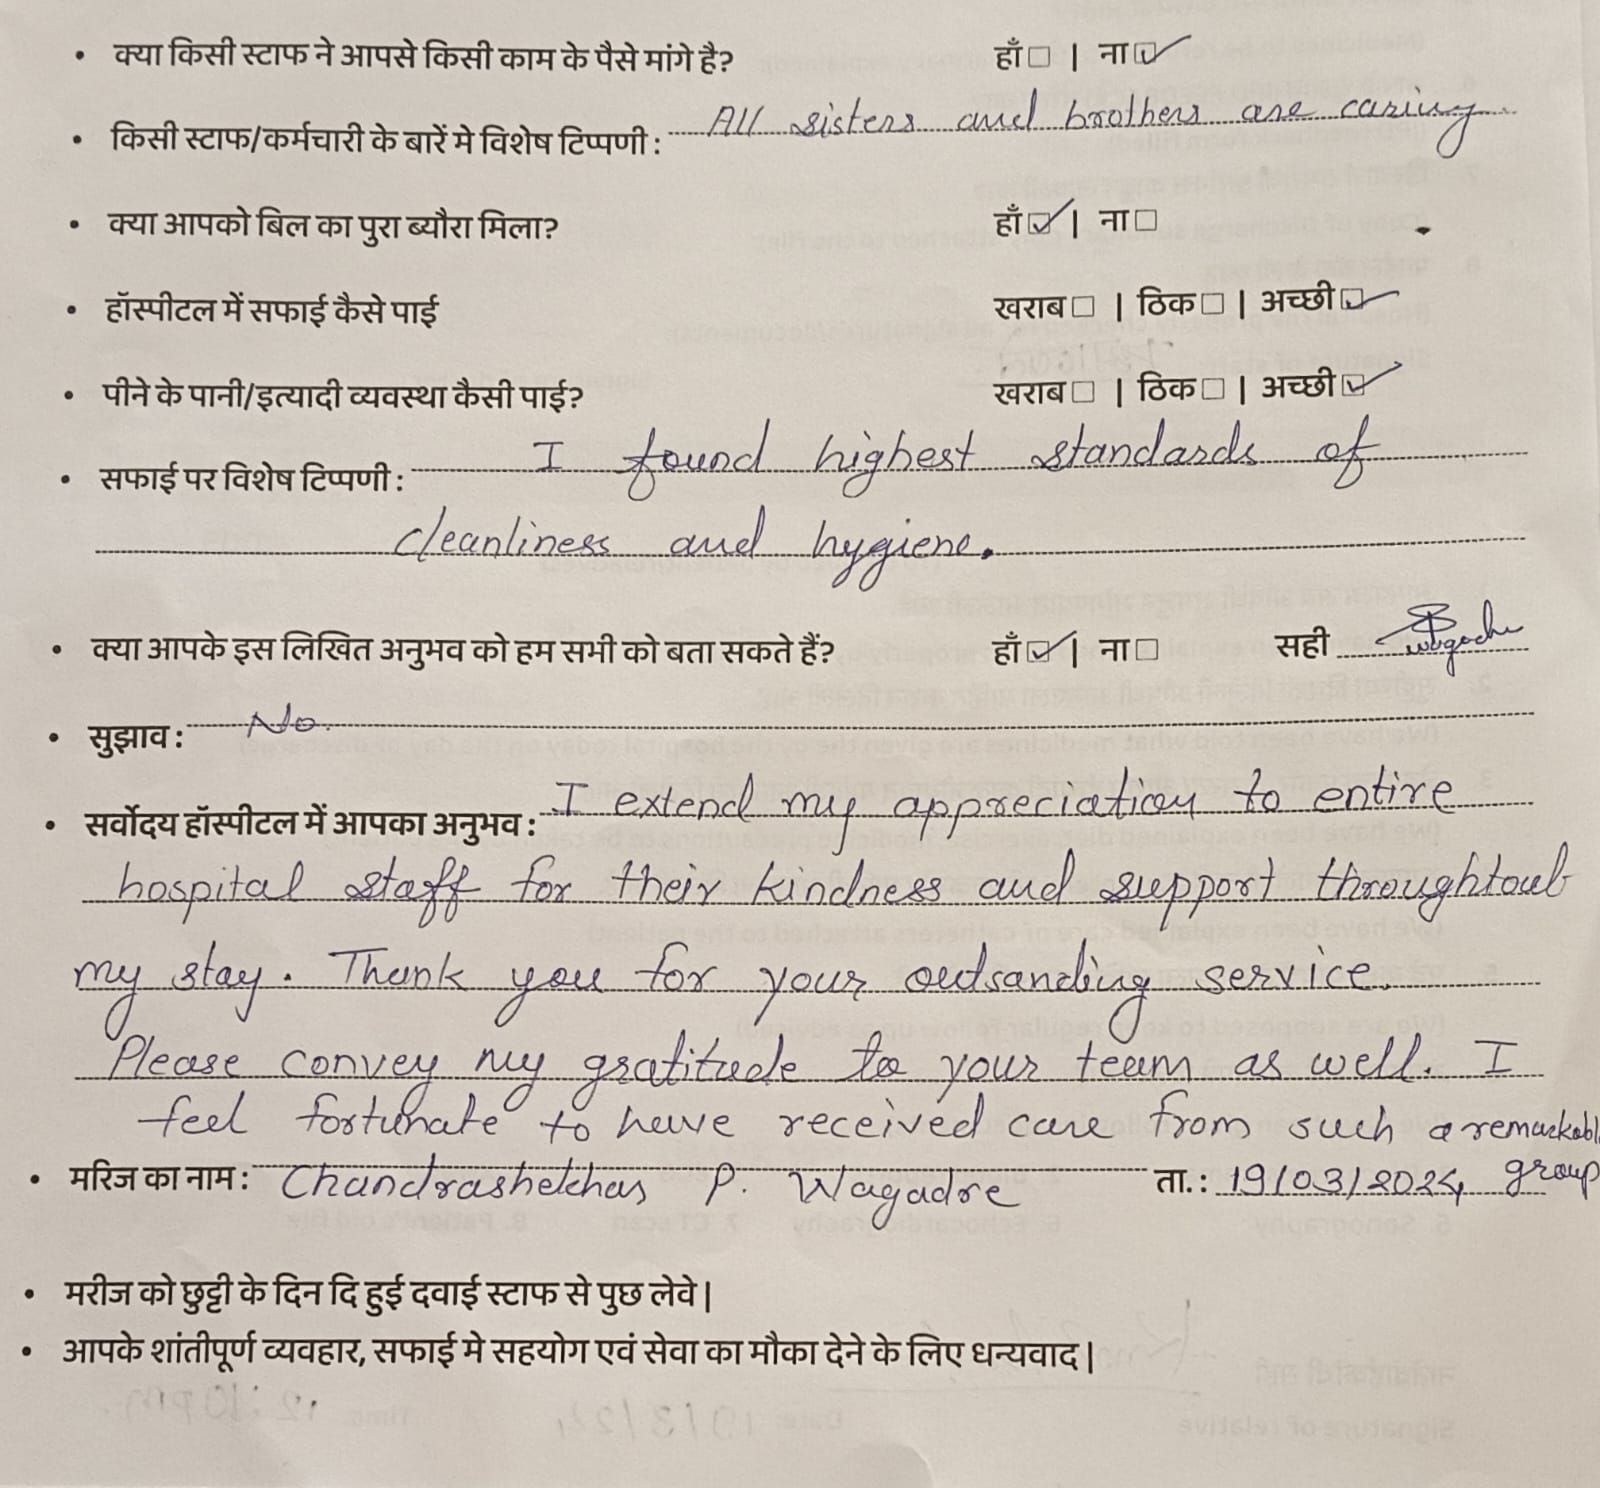 • क्या किसी स्टाफ ने आपसे किसी काम के पैसे मांगे है? हाँ☐ | ना☑
All sisters and brothers are caring
• किसी स्टाफ/कर्मचारी के बारें मे विशेष टिप्पणी :
• क्या आपको बिल का पुरा ब्यौरा मिला? हाँ☑ | ना☐
• हॉस्पीटल में सफाई कैसे पाई खराब☐ | ठिक☐ | अच्छी☑
• पीने के पानी/इत्यादी व्यवस्था कैसी पाई? खराब☐ | ठिक☐ | अच्छी☑
• सफाई पर विशेष टिप्पणी : I found highest standards of
cleanliness and hygiene.
• क्या आपके इस लिखित अनुभव को हम सभी को बता सकते हैं? हाँ☑ | ना☐ सही
• सुझाव : No.
• सर्वोदय हॉस्पीटल में आपका अनुभव : I extend my appreciation to entire
hospital staff for their kindness and support throughtout
my stay. Thank you for your outsanding service.
Please convey my gratitude to your team as well. I
feel fortunate to have received care from such a remarkabl
group
• मरिज का नाम : Chandrashekhar P. Wagadre ता.: 19/03/2024
• मरीज को छुट्टी के दिन दि हुई दवाई स्टाफ से पुछ लेवे |
• आपके शांतीपूर्ण व्यवहार, सफाई मे सहयोग एवं सेवा का मौका देने के लिए धन्यवाद |